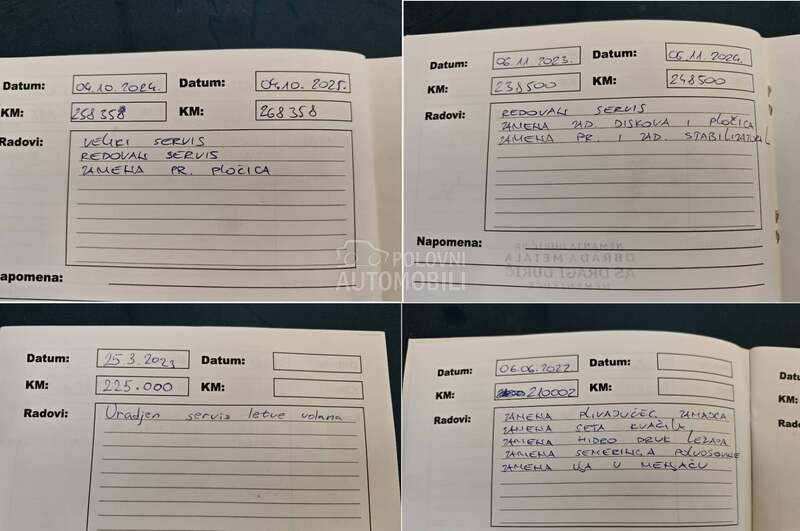 Datum: 04.10.2024. Datum: 04.10.2025.
KM: 258358 KM: 268358
Radovi: VELIKI SERVIS
REDOVAN SERVIS
ZAMENA PR. PLOČICA
apomena:
POLOVNI
AUTOMOBILI
Datum: 06.11.2023. Datum: 06.11.2024.
KM: 238500 KM: 248500
Radovi: REDOVAN SERVIS
ZAMENA ZAD. DISKOVA I PLOČICA
ZAMENA PR. I ZAD. STABILIZATORA
Napomena:
OBRADA METALA
Datum: 25.3.2023 Datum:
KM: 225.000 KM:
Radovi: Uradjen servis letve volana
Datum: 06.06.2022. Datum:
KM: 210002 KM:
Radovi: ZAMENA PLIVAJUĆEG ZAMAJCA
ZAMENA SETA KVAČILA
ZAMENA HIDRO DRUK LEŽAJA
ZAMENA SEMERINGA POLUOSOVINE
ZAMENA ULJA U MENJAČU
Datum:
KM:
Radovi: